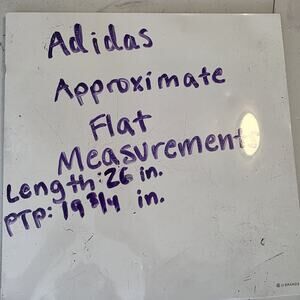 Adidas
Approximate
Flat
Measurement
Length: 26 in.
PTP: 19 3/4 in.